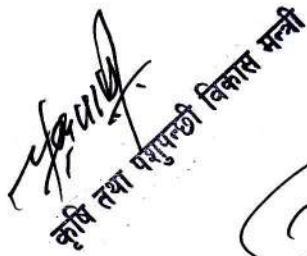 कृषि तथा पशुपन्छी विकास मन्त्री